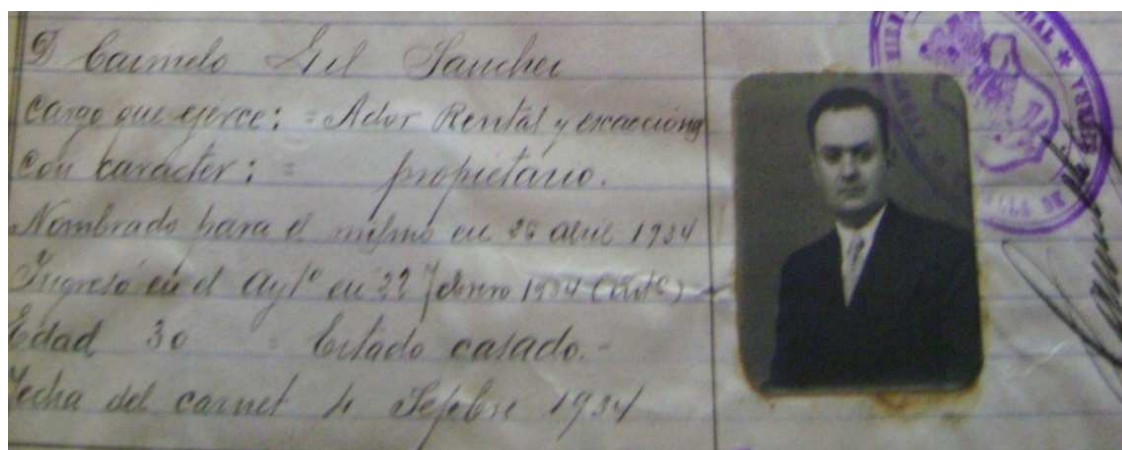 D Carmelo Gil Sanchez
Cargo que ejerce: = Ador Rental y exacciones
Con caracter: = propietario.
Nombrado para el mismo en 25 abril 1934
Ingresó en el Aytº en 22 febrero 1934
Edad 30 Estado casado.-
Fecha del carnet 4 Sepbre 1934